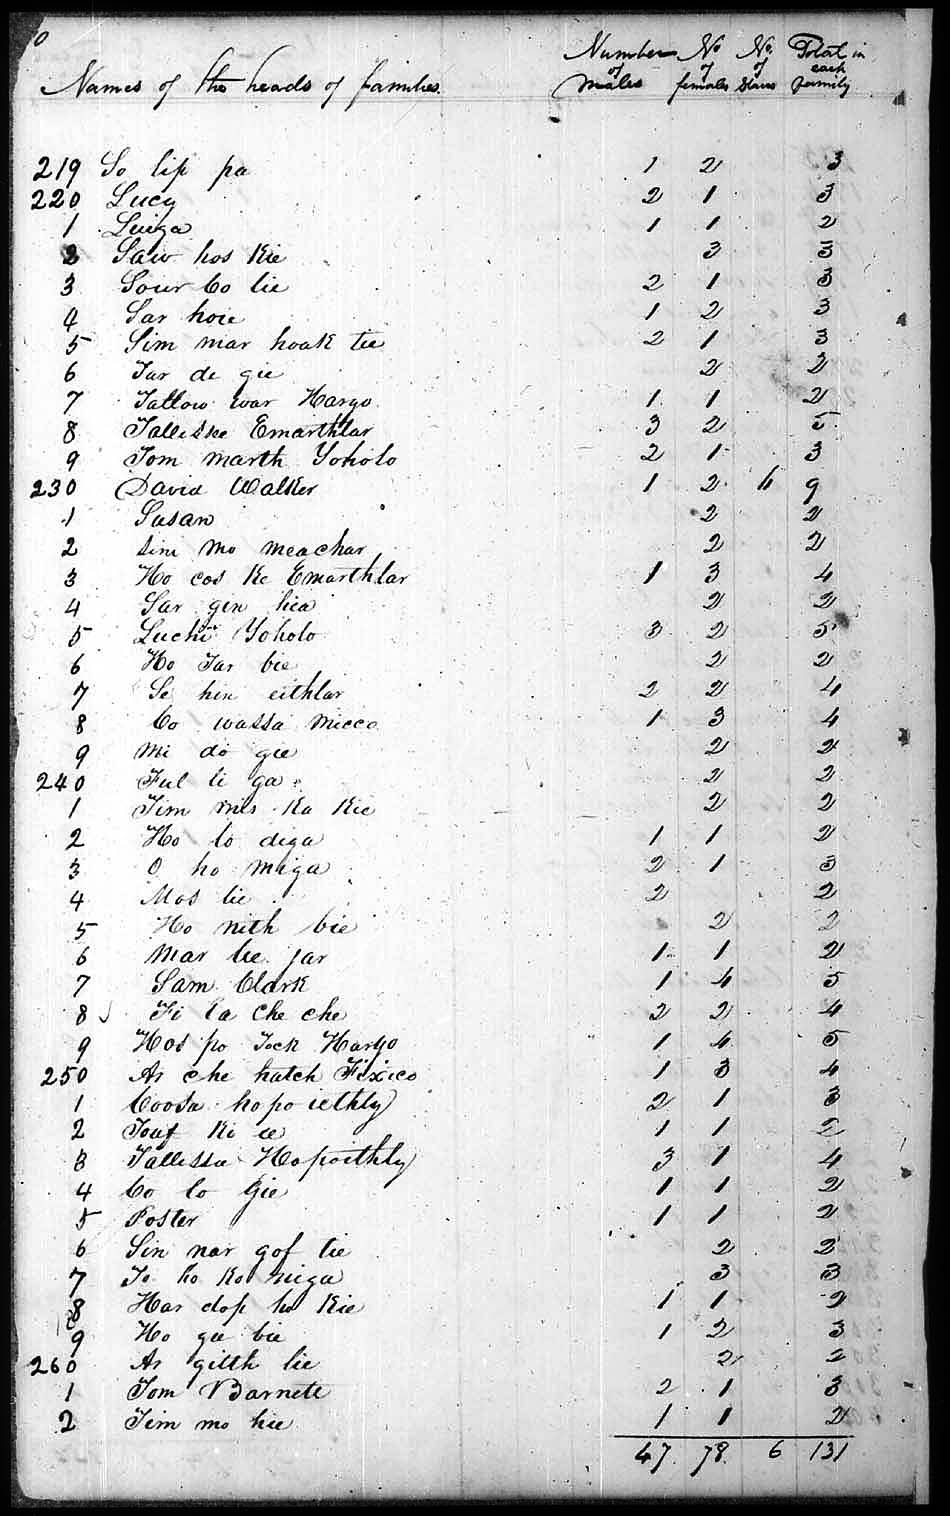 0
Number No No. Total in
of of of each
Names of the heads of families. males females Slaves family
219 So lip pa 1 2 3
220 Lucy 2 1 3
1 Luiza 1 1 2
2 Saw hos Kie 3 3
3 Sour Co lie 2 1 3
4 Sar hoie 1 2 3
5 Sim mar hoak tee 2 1 3
6 Tar de gee 2 2
7 Tallow war Hargo 1 1 2
8 Tallisee Emarthlar 3 2 5
9 Tom marth Yoholo 2 1 3
230 David Walker 1 2 6 9
1 Susan 2 2
2 Sim mo meachar 2 2
3 Ho cos Ke Emarthlar 1 3 4
4 Sar gen hea 2 2
5 Luchi Yoholo 3 2 5
6 Ho Tar bie 2 2
7 Se hin eithlar 2 2 4
8 Co wassa Micco 1 3 4
9 Mi do gee 2 2
240 Ful li ga 2 2
1 Tim mis Ka Kie 2 2
2 Ho lo diga 1 1 2
3 O ho miga 2 1 3
4 Mos lie 2 2
5 Ho nith bie 2 2
6 Mar lie jar 1 1 2
7 Sam Clark 1 4 5
8 Fi la che che 2 2 4
9 Hos po Tock Hargo 1 4 5
250 Ar che hatch Fixico 1 3 4
1 Coosa ho po iethly 2 1 3
2 Touf Ki ie 1 1 2
3 Tallissa Hopoithly 3 1 4
4 Co lo Gie 1 1 2
5 Foster 1 1 2
6 Sin nar gof tie 2 2
7 To ho Ko niga 3 3
8 Har dop ho Kie 1 1 2
9 Ho gee bie 1 2 3
260 Ar gilth lie 2 2
1 Tom Barnett 2 1 3
2 Tim mo hie 1 1 2
47 78 6 131